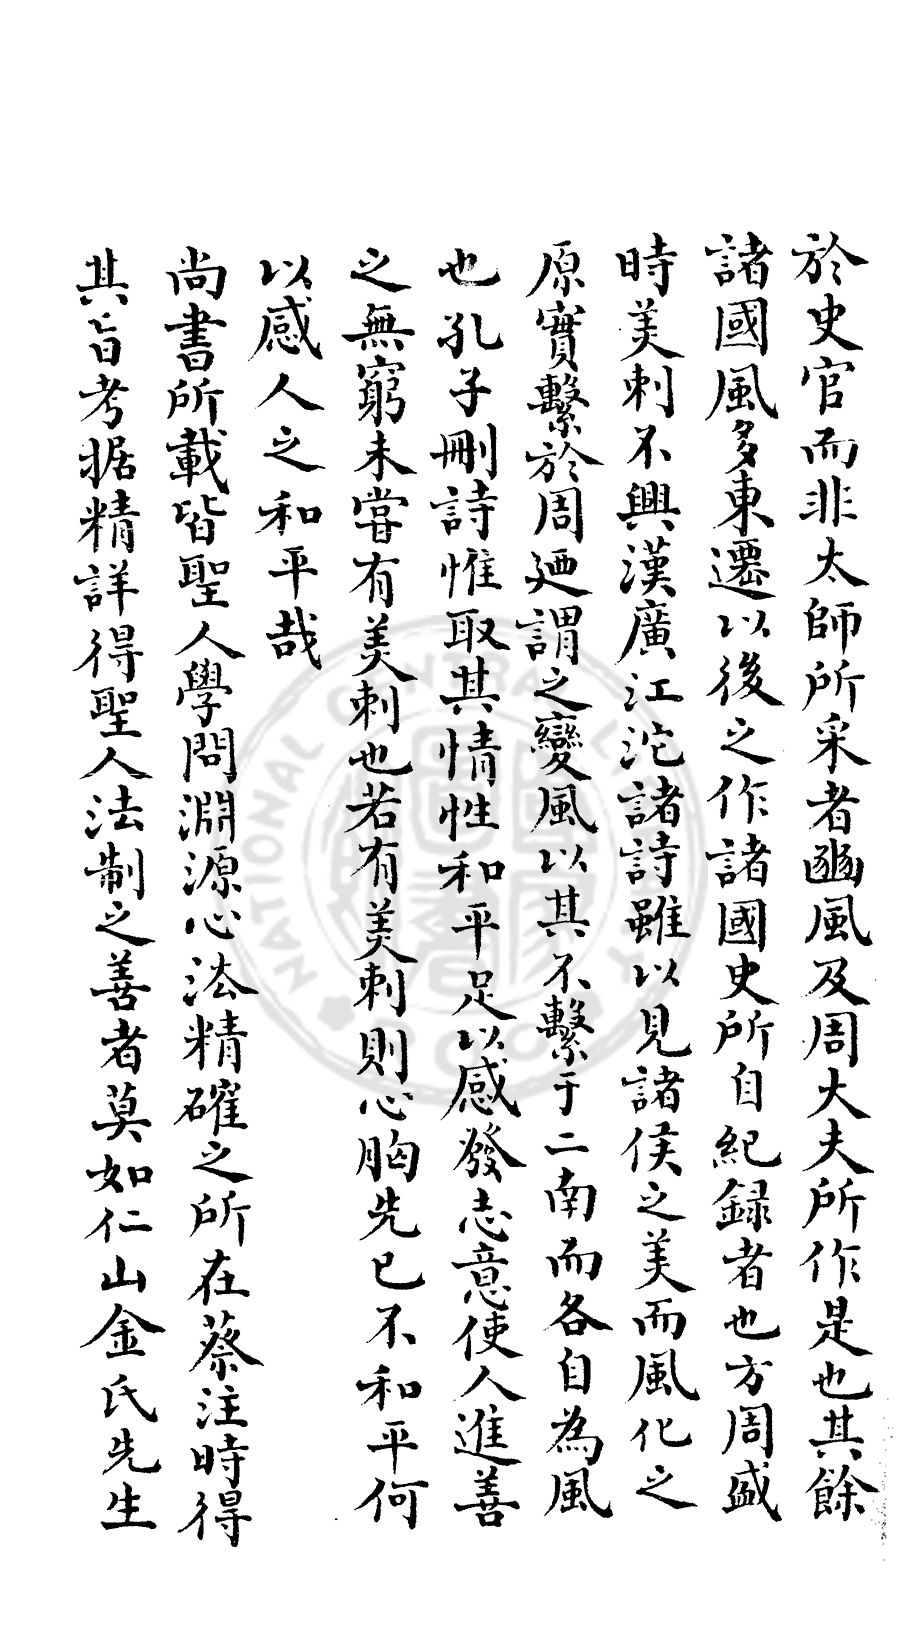 於史官而非太師所采者豳風及周大夫所作是也其餘
諸國風多東遷以後之作諸國史所自紀録者也方周盛
時美刺不興漢廣江沱諸詩雖以見諸侯之美而風化之
原實繫於周廼謂之變風以其不繫于二南而各自為風
也孔子刪詩惟取其情性和平足以感發志意使人進善
之無窮未嘗有美刺也若有美刺則心胸先已不和平何
以感人之和平哉
尚書所載皆聖人學問淵源心法精確之所在蔡注時得
其旨考据精詳得聖人法制之善者莫如仁山金氏先生
NATIONAL CENTRAL LIBRARY